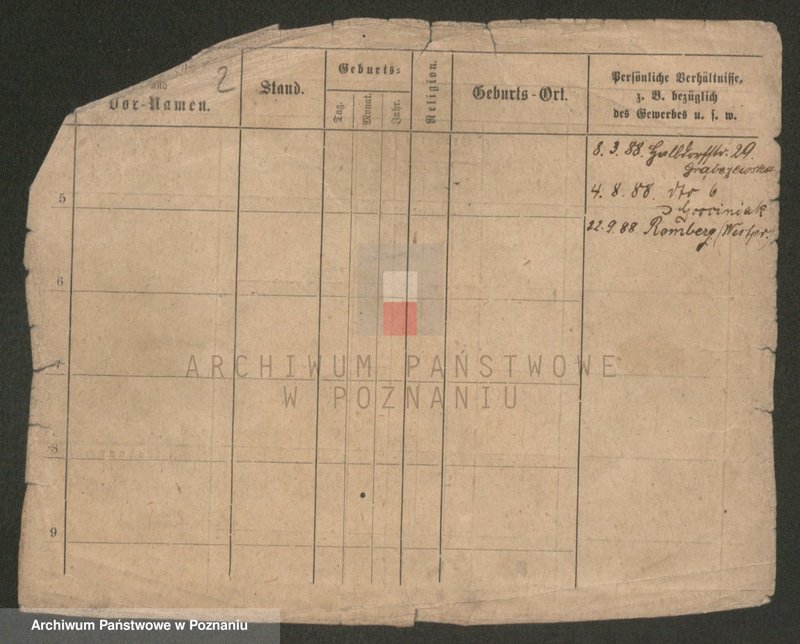 und
Vor-Namen.
2
Stand.
Geburts-
Tag.
Monat.
Jahr.
Religion.
Geburts-Ort.
Persönliche Verhältnisse,
z. B. bezüglich
des Gewerbes u. s. w.
8. 3. 88. Halbdorfstr. 29.
Grabczewska
5
4. 8. 88. dto 6
Gosciniak
22. 9. 88. (Westpr.)
6
7
8
9
ARCHIWUM PAŃSTWOWE
W POZNANIU
Archiwum Państwowe w Poznaniu